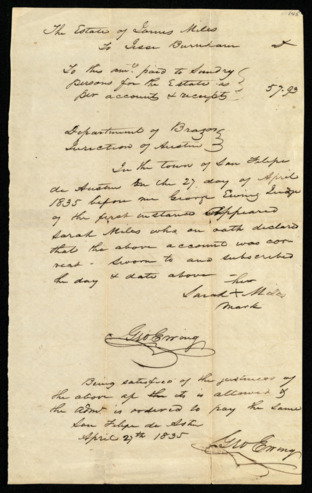 The Estate of James Miles
To Jesse Burnham
To this amt. paid to Sundry
persons for the Estate as
per accounts & receipts
57.93
Department of Brazos
Jurisdiction of Austin
In the town of San Felipe
de Austin on the 27 day of April
1835 before me George Ewing Judge
of the first instance Appeared
Sarah Miles who on oath declared
that the above account was cor
rect - Sworn to and subscribed
the day & date above - her
Sarah X Miles
mark
Geo Ewing
Being satisfied of the justness of
the above it is allowed &
the Admr is ordered to pay the same
San Felipe de
April 27th 1835
Geo Ewing